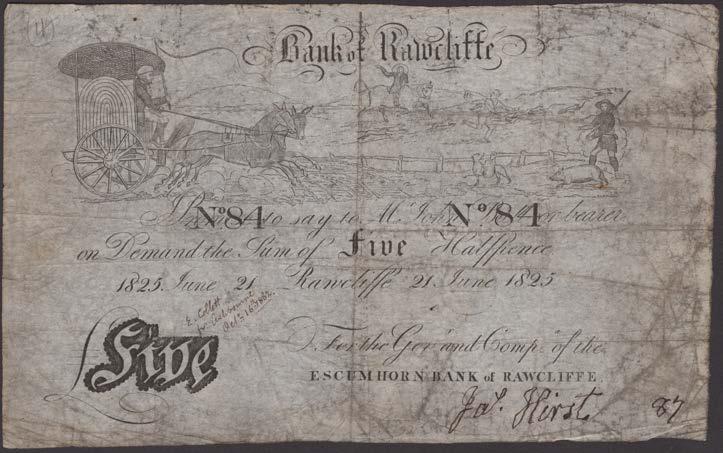 (11)
Bank of Rawcliffe
No 84 to say to Mr. John No 84 or bearer
on Demand the Sum of Five Halfpence
1825. June 21 Rawcliffe 21. June 1825
E. Collett
Octr. 16
£ Five
For the Gov. and Compy. of the
ESCUMHORN BANK of RAWCLIFFE.
Jas. Hirst. 87